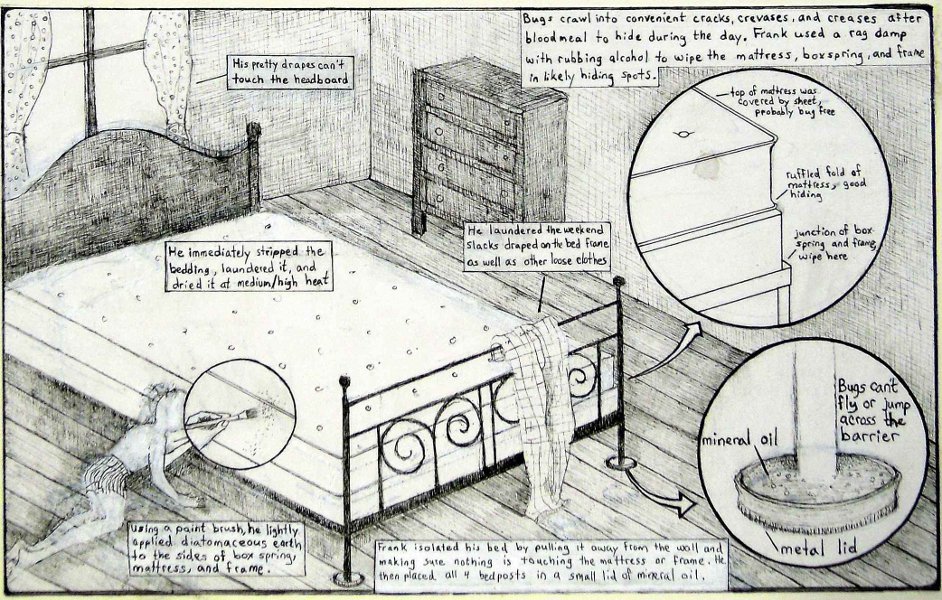 Bugs crawl into convenient cracks, crevases, and creases after
bloodmeal to hide during the day. Frank used a rag damp
with rubbing alcohol to wipe the mattress, boxspring, and frame
in likely hiding spots.
His pretty drapes can't
touch the headboard
top of mattress was
covered by sheet,
probably bug free
ruffled fold of
mattress, good
hiding
junction of box
spring and frame,
wipe here
He laundered the weekend
slacks draped on the bed frame
as well as other loose clothes
He immediately stripped the
bedding, laundered it, and
dried it at medium/high heat
Bugs can't
fly or jump
across the
barrier
mineral oil
metal lid
using a paint brush, he lightly
applied diatomaceous earth
to the sides of box spring,
mattress, and frame.
Frank isolated his bed by pulling it away from the wall and
making sure nothing is touching the mattress or frame. He
then placed all 4 bedposts in a small lid of mineral oil.